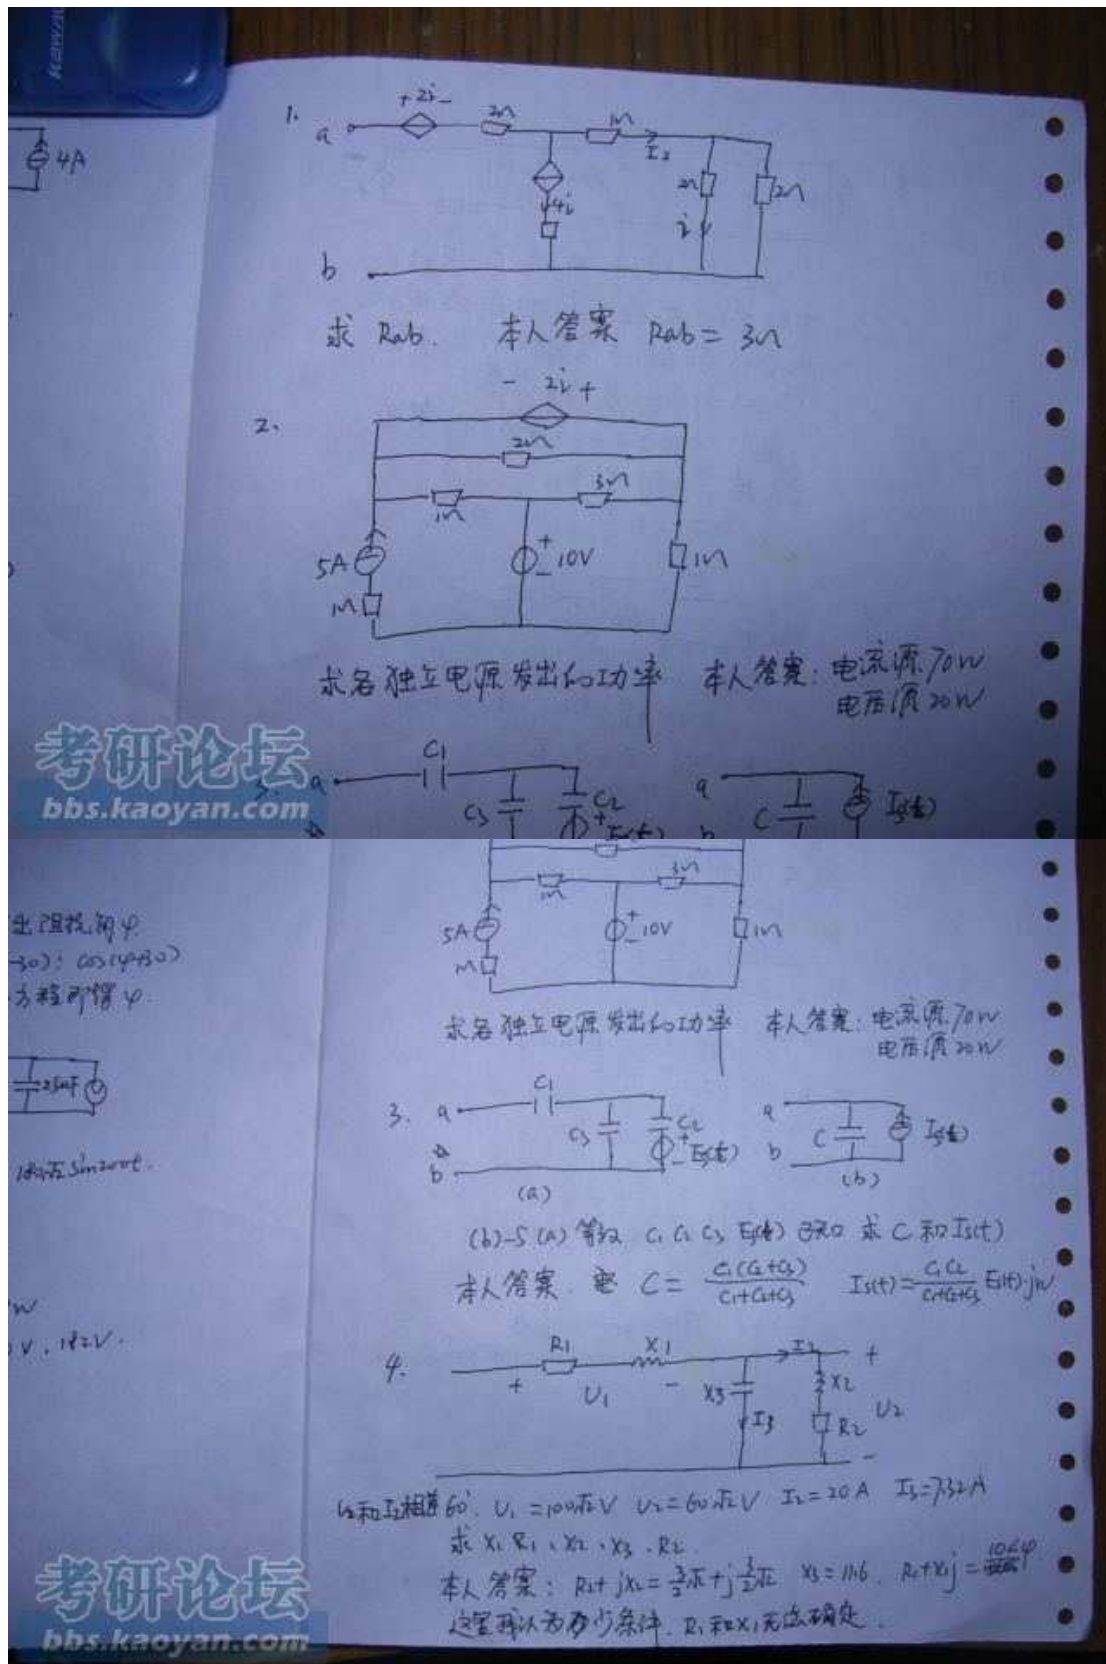 4A
1.
a
+ 2i -
2Ω
1Ω
I2
4i
2Ω
i
2Ω
b
求 Rab. 本人答案 Rab = 3Ω
2.
- 2i +
2Ω
1Ω
3Ω
5A
+
-
10V
1Ω
1Ω
求各独立电源发出的功率 本人答案: 电流源70W
电压源20W
考研论坛
bbs.kaoyan.com
3.
a
C1
C3
C2
+
Es(t)
a
b
C
Is(t)
出阻抗角φ
-30): cos(φ+30)
方程即得φ.
sin200t.
V, 182V.
1Ω
3Ω
5A
+
-
10V
1Ω
1Ω
求各独立电源发出的功率 本人答案: 电流源70W
电压源20W
3.
a
C1
C3
C2
+
-
Es(t)
b
(a)
a
b
C
Is(t)
(b)
(b)与(a)等效 C1 C2 C3 Es(t) 已知 求 C 和 Is(t)
本人答案. C = C1(C2+C3)/C1+C2+C3 Is(t) = C1C2/C1+C2+C3 Es(t)·jw
4.
R1
X1
+ U1 -
X3
I3
I2
X2
R2
+
U2
-
U2和I2相差60°. U1=100√2V U2=60√2V I2=20A I3=7.32A
求 X1 R1、X2、X3、R2.
本人答案: R2+jX2= 3/2√2+j 3/2√2 X3=11.6. R1+X1j = 10∠φ
这里我认为少条件. R1和X1无法确定.
考研论坛
bbs.kaoyan.com